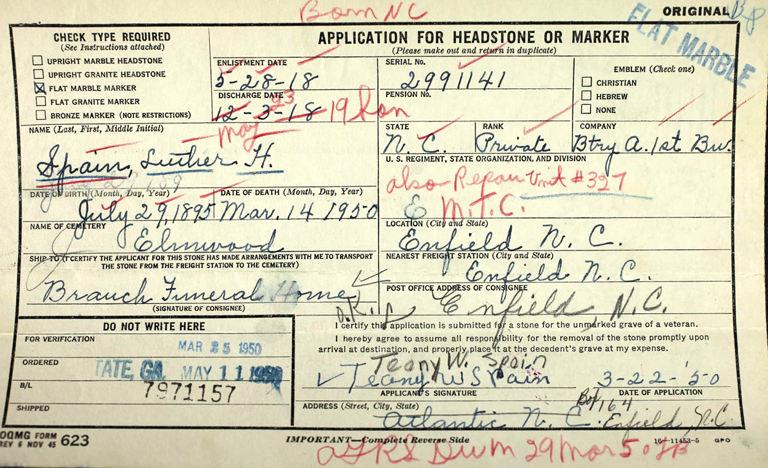 Born NC
ORIGINAL
FLAT MARBLE
CHECK TYPE REQUIRED
(See Instructions attached)
UPRIGHT MARBLE HEADSTONE
UPRIGHT GRANITE HEADSTONE
X FLAT MARBLE MARKER
FLAT GRANITE MARKER
BRONZE MARKER (NOTE RESTRICTIONS)
ENLISTMENT DATE
5-28-18
DISCHARGE DATE
12-3-18 19 Hon
May 23
APPLICATION FOR HEADSTONE OR MARKER
(Please make out and return in duplicate)
SERIAL No.
2991141
PENSION No.
EMBLEM (Check one)
CHRISTIAN
HEBREW
NONE
NAME (Last, First, Middle Initial)
Spain, Luther H.
STATE
N. C.
RANK
Private
COMPANY
Btry A. 1st Bn.
U. S. REGIMENT, STATE ORGANIZATION, AND DIVISION
also Repair Unit #327
M.T.C.
DATE OF BIRTH (Month, Day, Year)
July 29, 1895
DATE OF DEATH (Month, Day, Year)
Mar. 14 1950
NAME OF CEMETERY
Elmwood
LOCATION (City and State)
Enfield N. C.
SHIP TO (I CERTIFY THE APPLICANT FOR THIS STONE HAS MADE ARRANGEMENTS WITH ME TO TRANSPORT
THE STONE FROM THE FREIGHT STATION TO THE CEMETERY)
Branch Funeral Home
(SIGNATURE OF CONSIGNEE)
NEAREST FREIGHT STATION (City and State)
Enfield N. C.
POST OFFICE ADDRESS OF CONSIGNEE
Enfield, N.C.
DO NOT WRITE HERE
FOR VERIFICATION
MAR 25 1950
ORDERED
TATE, GA. MAY 11 1950
B/L
7971157
SHIPPED
I certify this application is submitted for a stone for the unmarked grave of a veteran.
I hereby agree to assume all responsibility for the removal of the stone promptly upon
arrival at destination, and properly place it at the decedent's grave at my expense.
Teany W. Spain
Teany W Spain
APPLICANT'S SIGNATURE
3-22-50
DATE OF APPLICATION
ADDRESS (Street, City, State)
Atlantic N. C.
Box 164
Enfield, N.C.
OQMG FORM
REV 6 NOV 45 623
IMPORTANT—Complete Reverse Side
16—11453-5 GPO
29 Mar 50